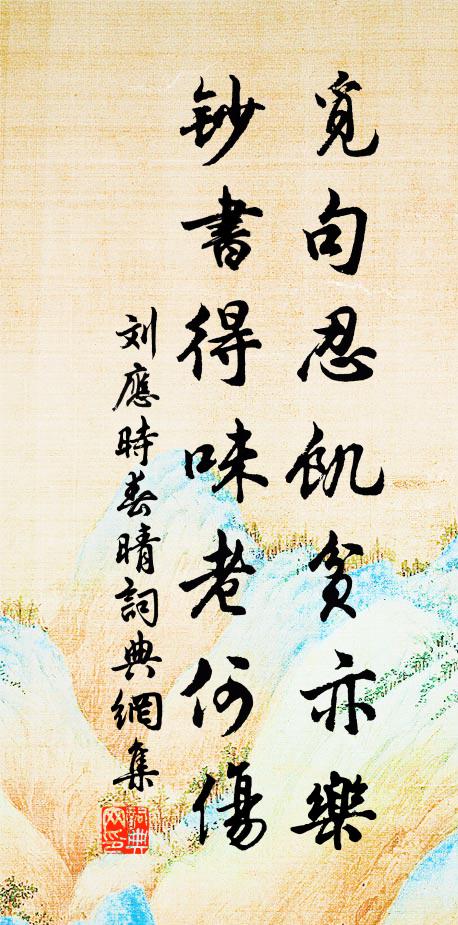 覓句忍飢貧亦樂
鈔書得味老何傷
刘應時春晴詞典網集
詞典
网印